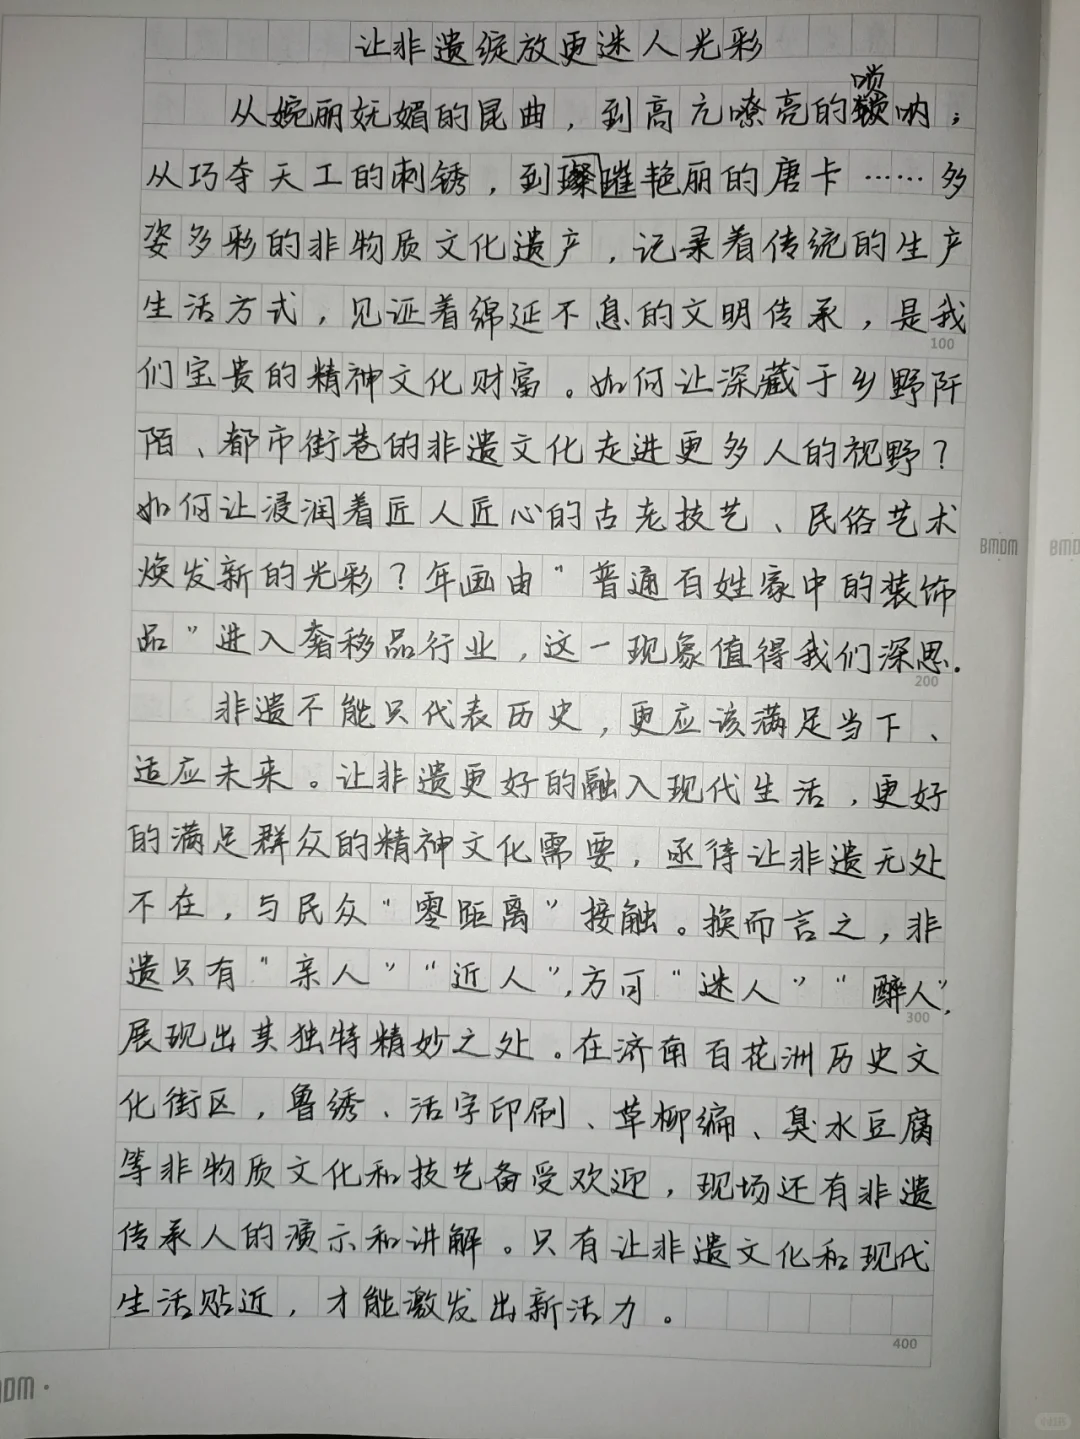 让非遗绽放更迷人光彩
从婉丽妩媚的昆曲，到高亢嘹亮的唢呐；
从巧夺天工的刺绣，到璀璨艳丽的唐卡……多
姿多彩的非物质文化遗产，记录着传统的生产
生活方式，见证着绵延不息的文明传承，是我
100
们宝贵的精神文化财富。如何让深藏于乡野阡
陌、都市街巷的非遗文化走进更多人的视野？
如何让浸润着匠人匠心的古老技艺、民俗艺术
焕发新的光彩？年画由“普通百姓家中的装饰
品”进入奢移品行业，这一现象值得我们深思。
200
非遗不能只代表历史，更应该满足当下、
适应未来。让非遗更好的融入现代生活，更好
的满足群众的精神文化需要，亟待让非遗无处
不在，与民众“零距离”接触。换而言之，非
遗只有“亲人”“近人”，方可“迷人”“醉人”，
300
展现出其独特精妙之处。在济南百花洲历史文
化街区，鲁绣、活字印刷、草柳编、臭水豆腐
等非物质文化和技艺备受欢迎，现场还有非遗
传承人的演示和讲解。只有让非遗文化和现代
生活贴近，才能激发出新活力。
400
BMDM